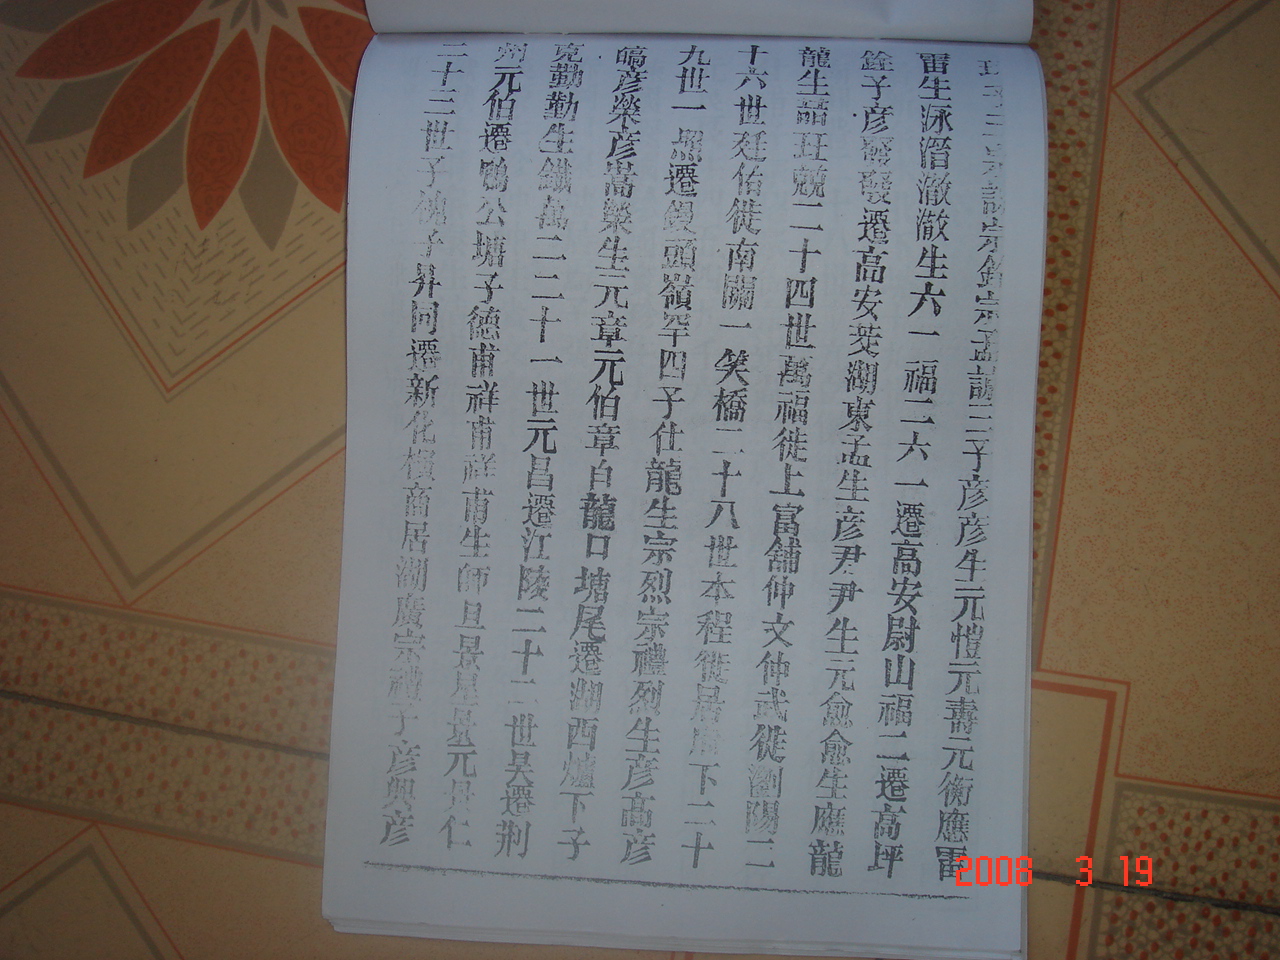 宗銘宗孟誠三子彥彥生元愷元壽元衡應雷
雷生泳潛澈澈生六一福二六一遷高安尉山福二遷高坪
銓子彥發發遷高安茭湖東孟生彥尹尹生元愈愈生應龍
龍生喆玨兢二十四世萬福徙上富舖仲文仲武徙瀏陽二
十六世廷佑徙南關一笑橋二十八世本程徙居下二十
九世一照遷饅頭嶺罕四子仕龍生宗烈宗禮烈生彥高彥
皜彥榮彥嵩榮生元章元伯章自龍口塘尾遷湖西爐下子
克勤勤生鐵萬二二十一世元昌遷江陵二十二世昊遷荆
州元伯遷鴨公塘子德甫祥甫祥甫生師旦景星景元景仁
二十三世子佛子昇同遷新化橫畬居湖廣宗禮子彥興彥
2008 3 19